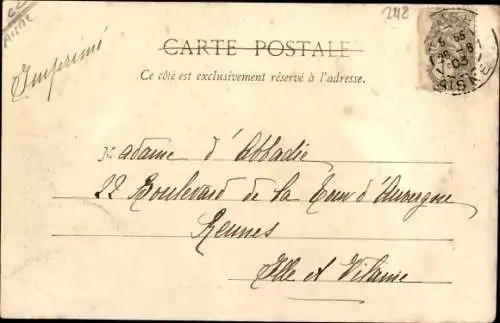 242
CARTE POSTALE
Ce côté est exclusivement réservé à l'adresse.
Imprimé
Madame d'Abbadie
22 Boulevard de la Tour d'Auvergne
Rennes
Ille et Vilaine
03